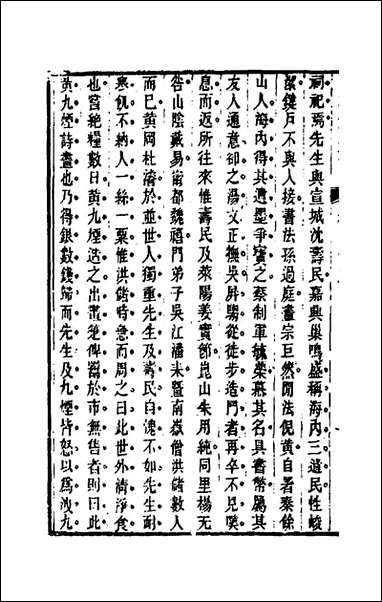 祠祀焉先生與宣城沈壽民嘉興巢鳴盛稱海內三遺民性峻
潔鍵戶不與人接書法孫過庭畫宗巨然間法倪黃自署秦餘
山人海內得其遺墨爭寶之蔡制軍毓榮慕其名具書幣屬其
友人通意卻之湯文正撫吳屛騶從徒步造門者再卒不見嘆
息而返所往來惟壽民及萊陽姜實節崑山朱用純同里楊无
咎山陰戴易甯都魏禧門弟子吳江潘耒暨南嶽僧洪儲數人
而已黃岡杜濬於並世人獨重先生及壽民自不如先生耐
寒飢不納人一絲一粟惟洪儲時急而周之曰此世外淸淨食
也嘗絕糧數日黃九煙造之出畫箑俾鬻於市無售者則曰此
黃九煙詩畫也乃得銀數錢歸而先生及九煙皆怒以爲洩九